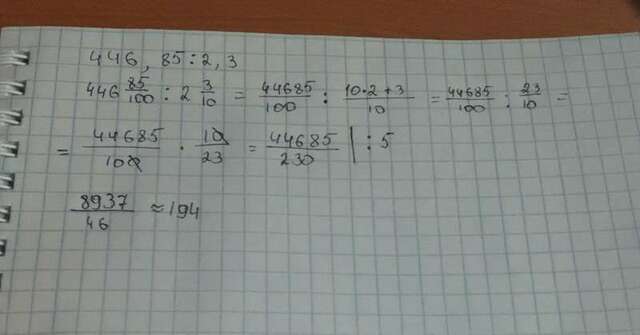 446, 85 : 2, 3
446 85/100 : 2 3/10 = 44685/100 : 10·2+3/10 = 44685/100 : 23/10 =
= 44685/100 · 10/23 = 44685/230 | : 5
8937/46 ≈ 194